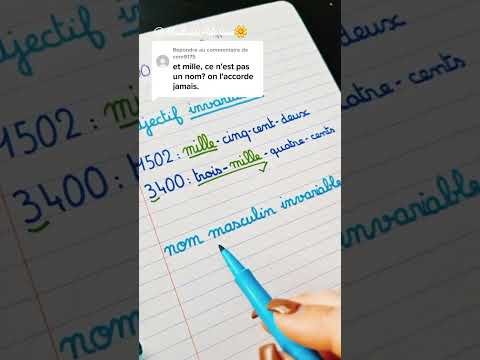 Répondre au commentaire de
et mille, ce n'est pas
un nom? on l'accorde
jamais.
djectif invaria
1502 : mille-cinq-cent-deux
3400 : trois-mille-quatre-cents
nom masculin invariable